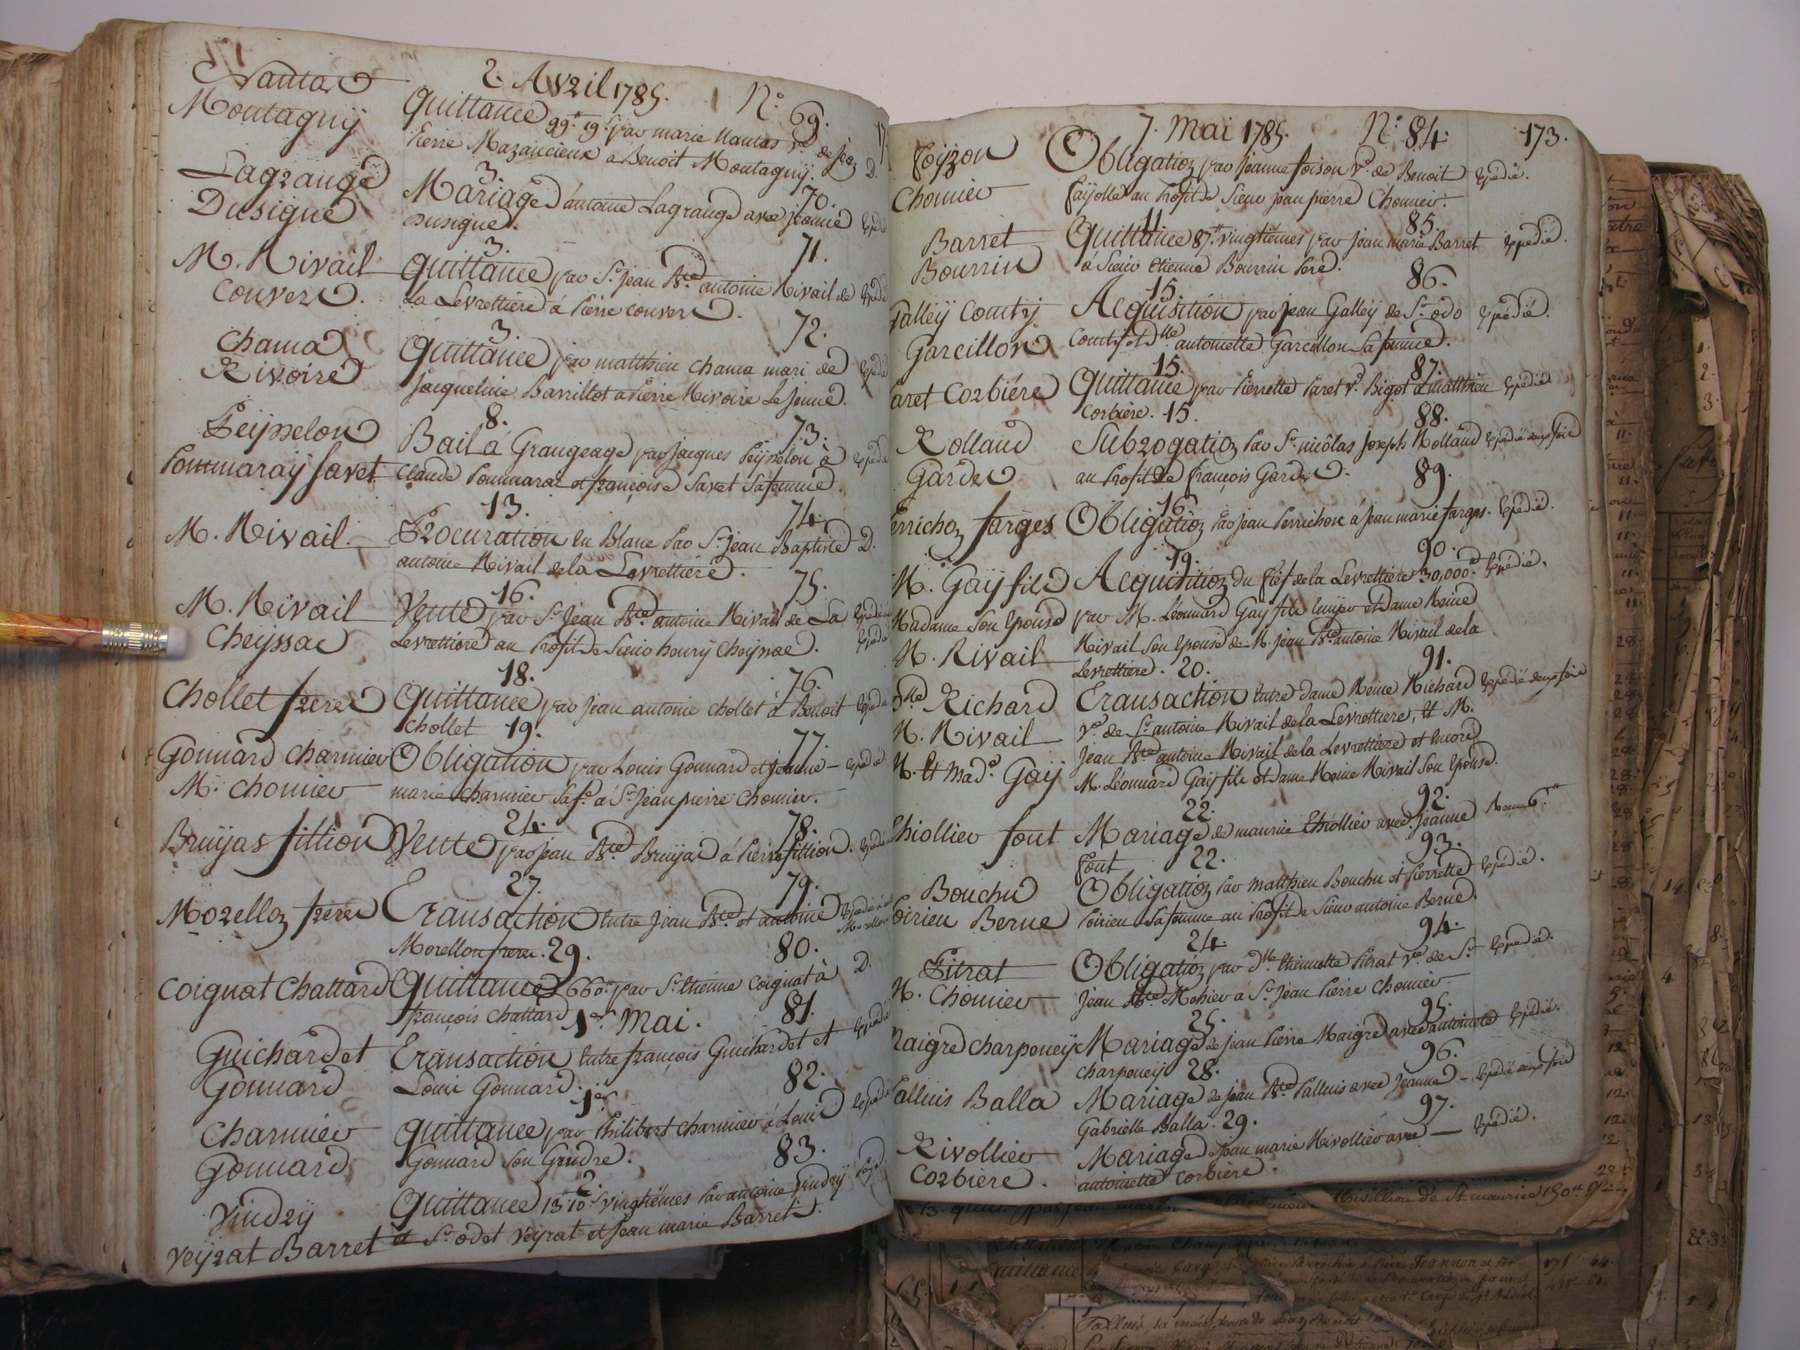 2. Avril 1785. N.° 69.
Nantas
Montagny
Quittance 99tt 19s par marie Nantas ve. de
Pierre Mazancieux a Benoit Montagny. D.
3. 70.
Lagrange
Dusigne
Mariage d'antoine Lagrange avec jeanne
Dusigne.
3. 71.
M. Rivail
Couvert.
Quittance par Sr. Jean Bte. antoine Rivail de
La Levrettiere à Pierre Couvert.
3. 72.
Chama
Rivoire
Quittance par matthieu Chama mari de
Jacqueline Barrillot a Pierre Rivoire Le Jeune.
8. 73.
Peysselon
Pommaray Savet
Bail à Grangeage par Jacques Peysselon a
Claude Pommaral et françoise Savet sa femme.
13. 74.
M. Rivail
Procuration En Blanc Par Sr. Jean Baptiste D.
antoine Rivail de la Levrettiere.
16. 75.
M. Rivail
Cheyssac
Vente par Sr. Jean Bte. antoine Rivail de La
Levrettiere au Profit de Sieur henry Cheyssac.
18. 76.
Chollet freres
Quittance par Jean antoine Chollet à Benoit
Chollet
19. 77.
Gonnard Charmier
Mr. Chomier
Obligation par Louis Gonnard et jeanne Expedié
marie Charmier sa fe. a Sr. Jean pierre Chomier.
24. 78.
Bruyas fillion
Vente par Jean Bte. Bruyas à Pierre fillion.
27. 79.
Morellon freres
Transaction Entre Jean Bte. et antoine
Morellon freres.
29. 80.
Coignat Chattard
Quittance 660tt par Sr. Etienne Coignat à D.
françois Chattard
1er. Mai. 81.
Guichardet
Gonnard
Transaction Entre françois Guichardet et
Louis Gonnard.
1er 82.
Charmier
Gonnard
Quittance par Philibert Charmier à Louis
Gonnard Son Gendre.
2. 83.
Vindry
Veyrat Barret
Quittance 13tt 10s vingtiémes Par antoine Vindry
et Sr. odet Veyrat et Jean marie Barret.
7. Mai 1785. N.° 84. 173.
foyzon
Chomier
Obligation par Jeanne foison ve. de Benoit Expedié.
fayolle au Profit de Sieur jean pierre Chomier.
11. 85.
Barret
Bourrin
Quittance 87tt vingtiémes par Jean marie Barret Expedié.
à Sieur Etienne Bourrin Pere.
15. 86.
Galley Comty
Garcillon
Acquisition par Jean Galley de St. odo Expedié.
Comty et dlle. antoinette Garcillon sa femme.
15. 87.
Paret Corbiére
Quittance par Pierrette Paret ve. Bigot à matthieu Expedié
Corbiere.
15. 88.
Rolland
Garde
Subrogation Par Sr. nicolas Joseph Rolland Expedié deux fois
au Profit de françois Garde.
16. 89.
Perrichon farges
Obligation Par Jean Perrichon à Jean marie farges. Expedié.
19. 90.
M. Gay fils
Madame Son Epouse
M. Rivail
Acquisition du fief de la Levrettiere 30,000tt Expedié.
par M. Léonnard Gay fils et dame Reine
Rivail Son Epouse de M. Jean Bte. antoine Rivail de la
Levrettiere.
20. 91.
Dme Richard
M. Rivail
M. Et Made. Gay
Transaction Entre dame Reine Richard Expedié deux fois
ve. de Sr. antoine Rivail de la Levrettiere, Et M.
Jean Bte. antoine Rivail de la Levrettiere et Encore
M. Léonnard Gay fils et dame Reine Rivail Son Epouse.
22. 92.
Thiollier font
Mariage de maurice Thiollier avec Jeanne
font
22. 93.
Bouchu
Poirieu Berne
Obligation Par Matthieu Bouchu et Pierrette Expedié.
Poirieu sa femme au Profit de Sieur antoine Berne.
24. 94.
Pitrat
M. Chomier
Obligation par dlle. Etiennette Pitrat ve. de Sr. Expedié.
Jean Bte. Mohier a Sr. Jean Pierre Chomier.
25. 95.
Maigre Charpeney
Mariage de Jean Pierre Maigre avec antoinette Expedié.
Charpeney
28. 96.
Palluis Balla
Mariage de Jean Bte. Palluis avec Jeanne Expedié deux fois
Gabrielle Balla.
29. 97.
Rivollier
Corbiere.
Mariage de Jean marie Rivollier avec Expedié.
antoinette Corbiere.